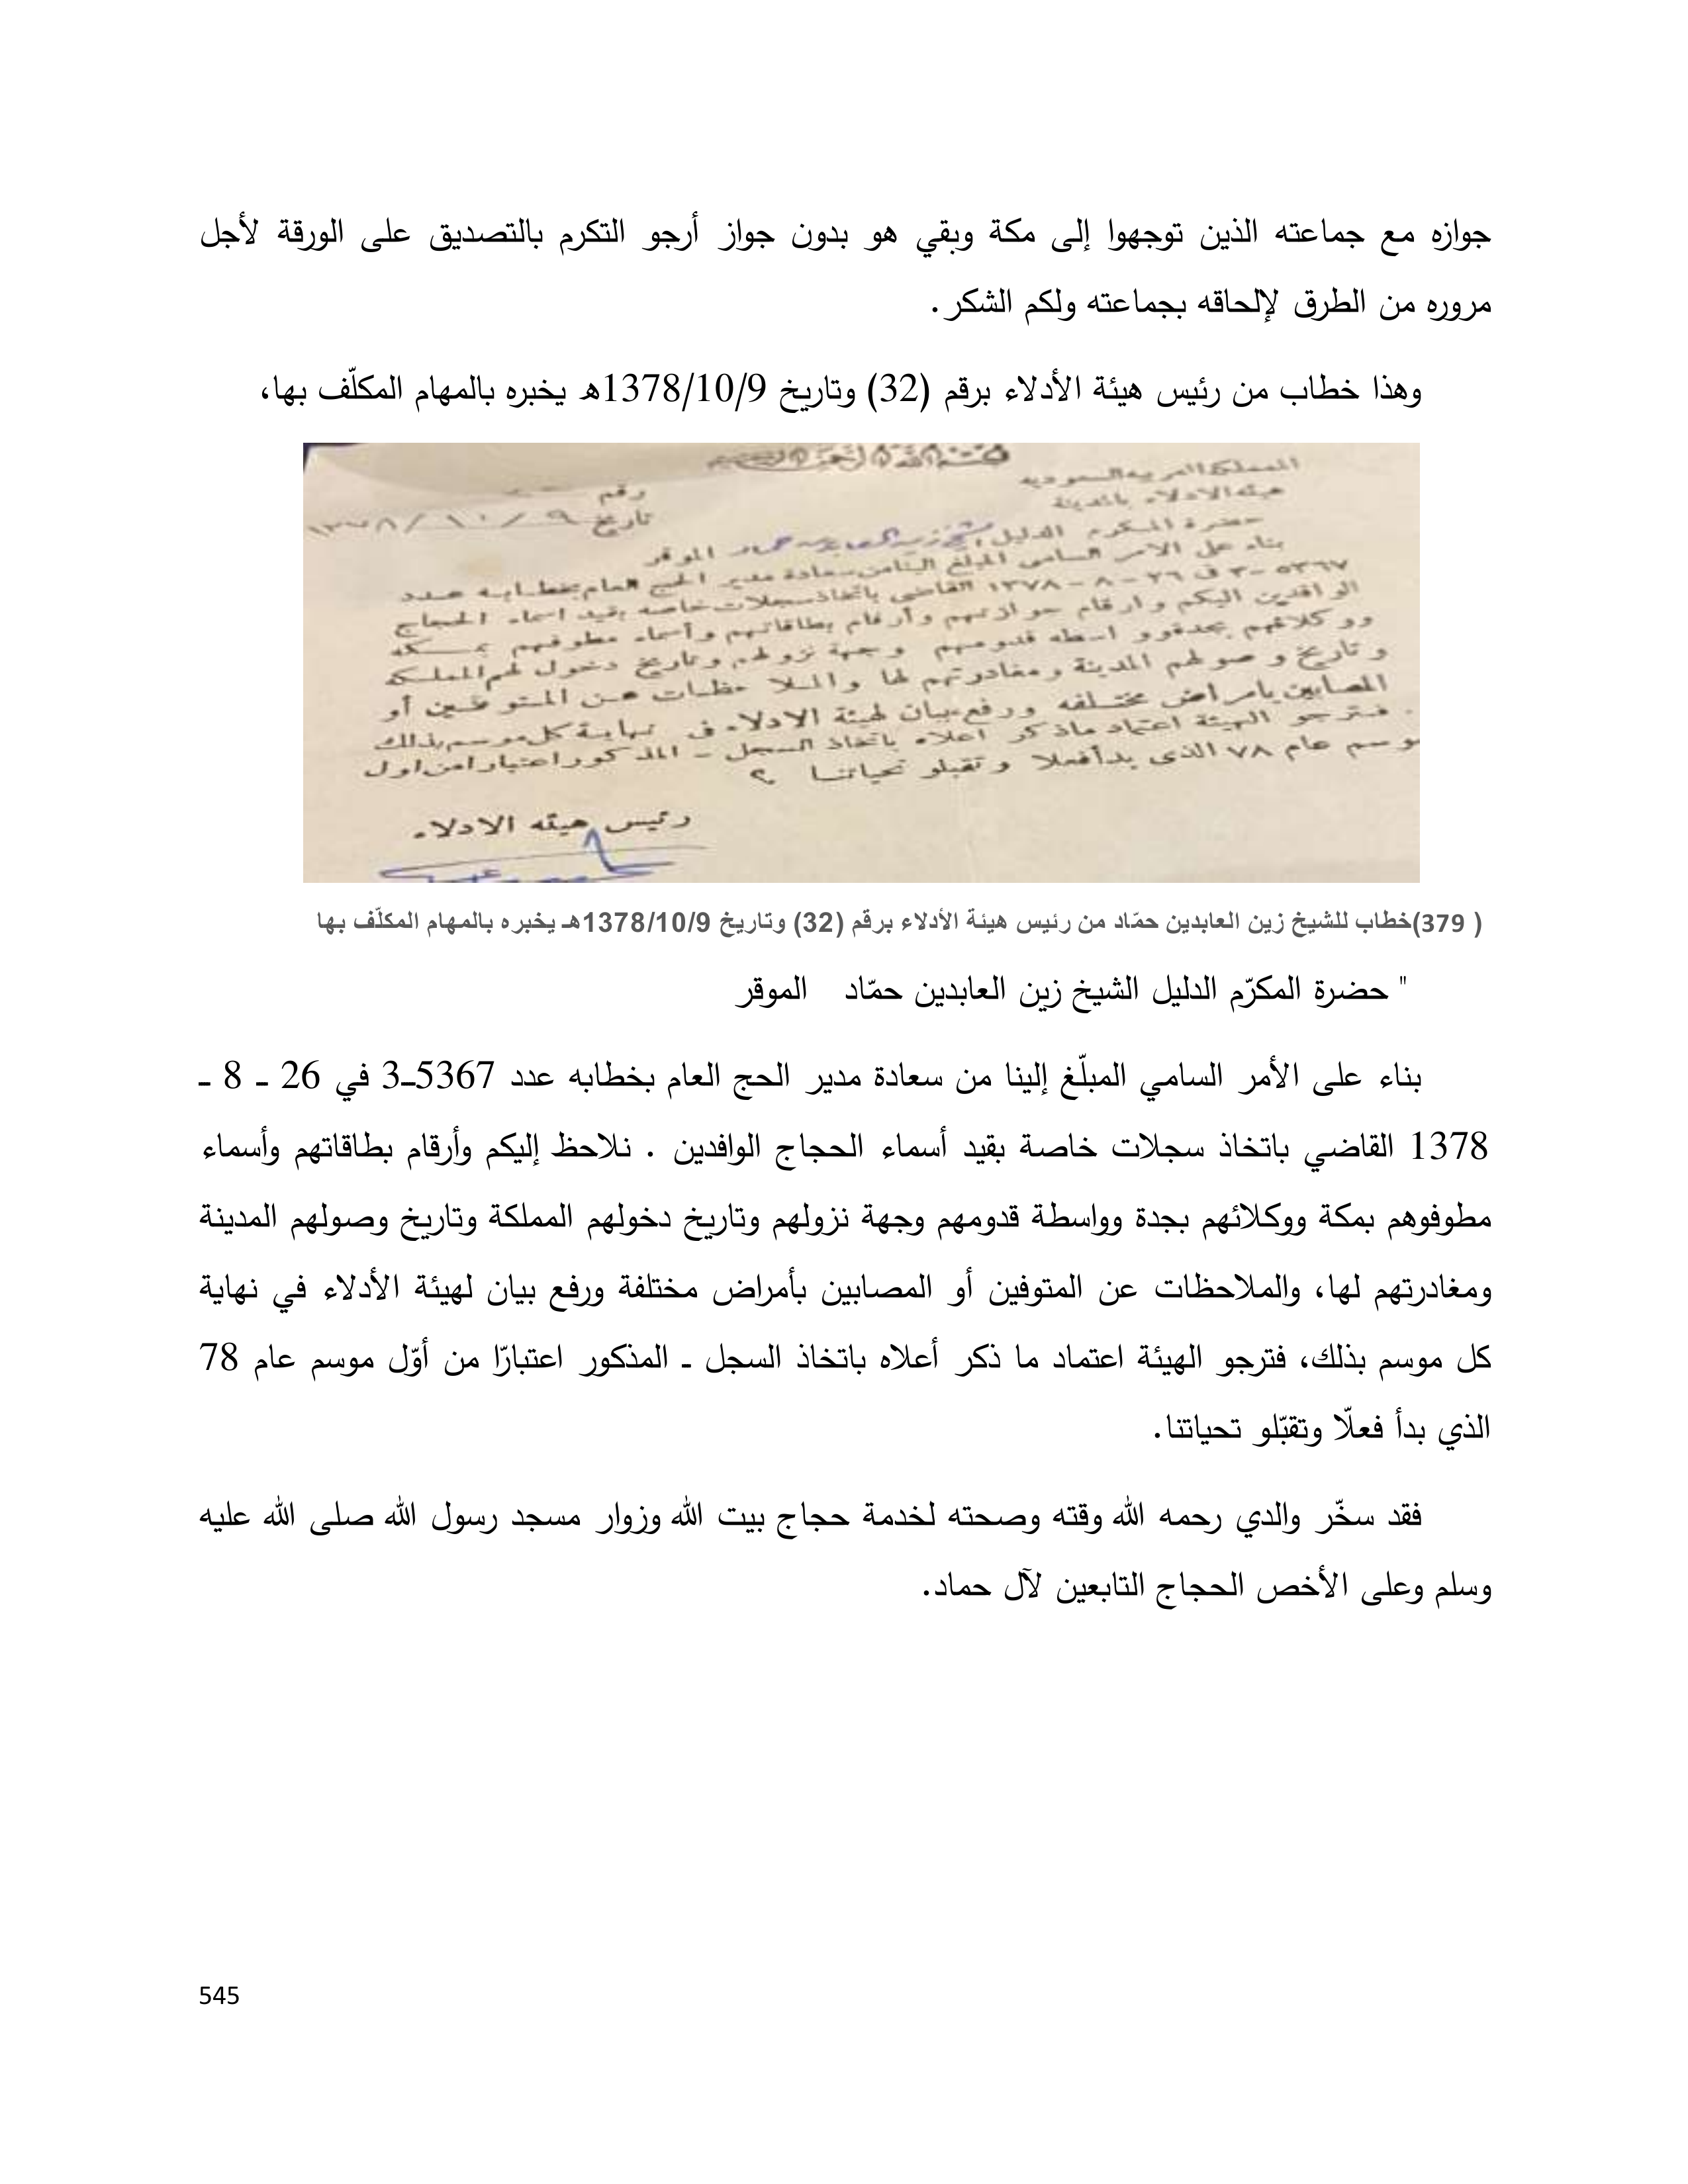 جوازه مع جماعته الذين توجهوا إلى مكة وبقي هو بدون جواز أرجو التكرم بالتصديق على الورقة لأجل
مروره من الطرق لإلحاقه بجماعته ولكم الشكر.
وهذا خطاب من رئيس هيئة الأدلاء برقم (32) وتاريخ 1378/10/9ه يخبره بالمهام المكلّف بها،
بسم الله الرحمن الرحيم
المملكة العربية السعودية
هيئة الادلاء بالمدينة
رقم
تاريخ ٩ / ١٠ / ١٣٧٨
حضرة المكرم الدليل الشيخ زين العابدين حماد الموقر
بناء على الامر السامى المبلغ الينا من سعادة مدير الحج العام بخطابه عدد
٥٣٦٧ -٣ فى ٢٦ - ٨ - ١٣٧٨ القاضى باتخاذ سجلات خاصه بقيد اسماء الحجاج
الوافدين اليكم وارقام جوازتهم وأرقام بطاقاتهم وأسماء مطوفهم بمكه
ووكلائهم بجدة وواسطه قدومهم وجهة نزولهم وتاريخ دخولهم المملكة
وتاريخ وصولهم المدينة ومغادرتهم لها والملاحظات عن المتوفين أو
المصابين بامراض مختلفه ورفع بيان لهيئة الادلاء فى نهاية كل موسم بذلك
. فترجو الهيئة اعتماد ماذكر اعلاه باتخاذ السجل - المذكور اعتبارا من اول
موسم عام ٧٨ الذى بدأ فعلا وتقبلو تحياتنا
رئيس هيئه الادلاء
( 379)خطاب للشيخ زين العابدين حمّاد من رئيس هيئة الأدلاء برقم (32) وتاريخ 1378/10/9هـ يخبره بالمهام المكلّف بها
" حضرة المكرّم الدليل الشيخ زين العابدين حمّاد الموقر
بناء على الأمر السامي المبلّغ إلينا من سعادة مدير الحج العام بخطابه عدد 5367ـ3 في 26 ـ 8 ـ
1378 القاضي باتخاذ سجلات خاصة بقيد أسماء الحجاج الوافدين . نلاحظ إليكم وأرقام بطاقاتهم وأسماء
مطوفوهم بمكة ووكلائهم بجدة وواسطة قدومهم وجهة نزولهم وتاريخ دخولهم المملكة وتاريخ وصولهم المدينة
ومغادرتهم لها، والملاحظات عن المتوفين أو المصابين بأمراض مختلفة ورفع بيان لهيئة الأدلاء في نهاية
كل موسم بذلك، فترجو الهيئة اعتماد ما ذكر أعلاه باتخاذ السجل ـ المذكور اعتبارّا من أوّل موسم عام 78
الذي بدأ فعلّا وتقبّلو تحياتنا.
فقد سخّر والدي رحمه الله وقته وصحته لخدمة حجاج بيت الله وزوار مسجد رسول الله صلى الله عليه
وسلم وعلى الأخص الحجاج التابعين لآل حماد.
545